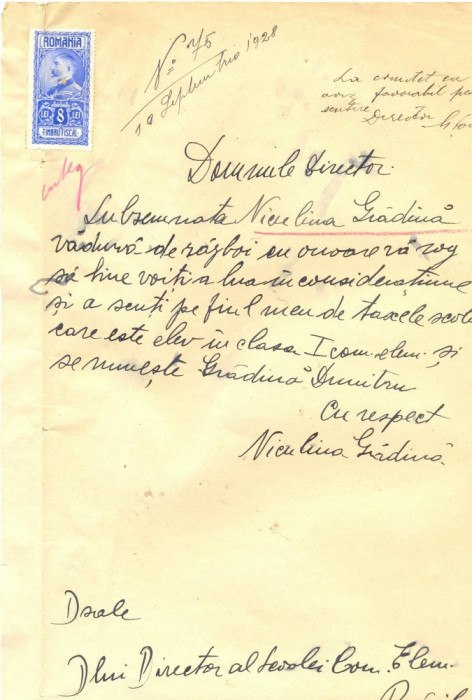 ROMANIA
LEI 8 LEI
TIMBRU FISCAL
No 75
19 Septembrie 1928
La comitet cu
aviz favorabil pe
scutire
Director
Domnule Director
Subsemnata Niculina Grădină
văduvă de război cu onoare vă rog
să bine voiți a lua în considerațiune
și a scuti pe fiul meu de taxele scola
care este elev în clasa I com. elem. și
se numește Grădină Dumitru
Cu respect
Niculina Grădină
Dsale
Dlui Director al Școlei Com. Elem.